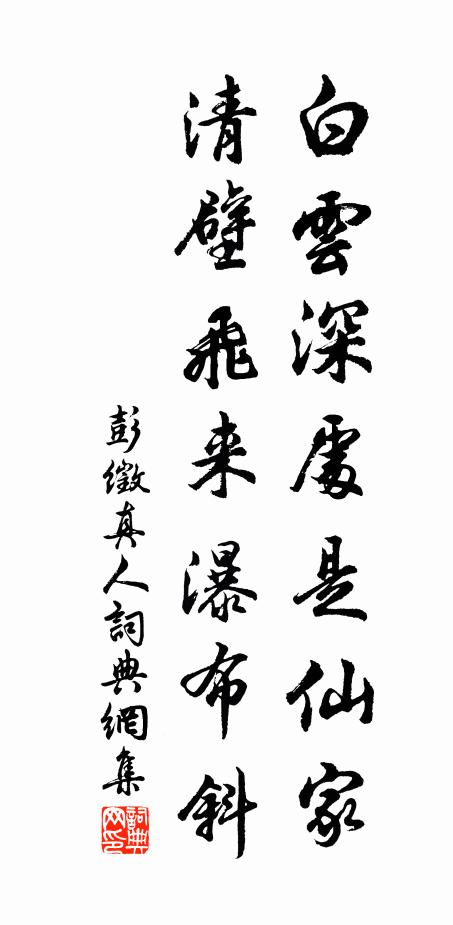 白雲深處是仙家
清壁飛来瀑布斜
彭徵真人詞典網集
詞典网印